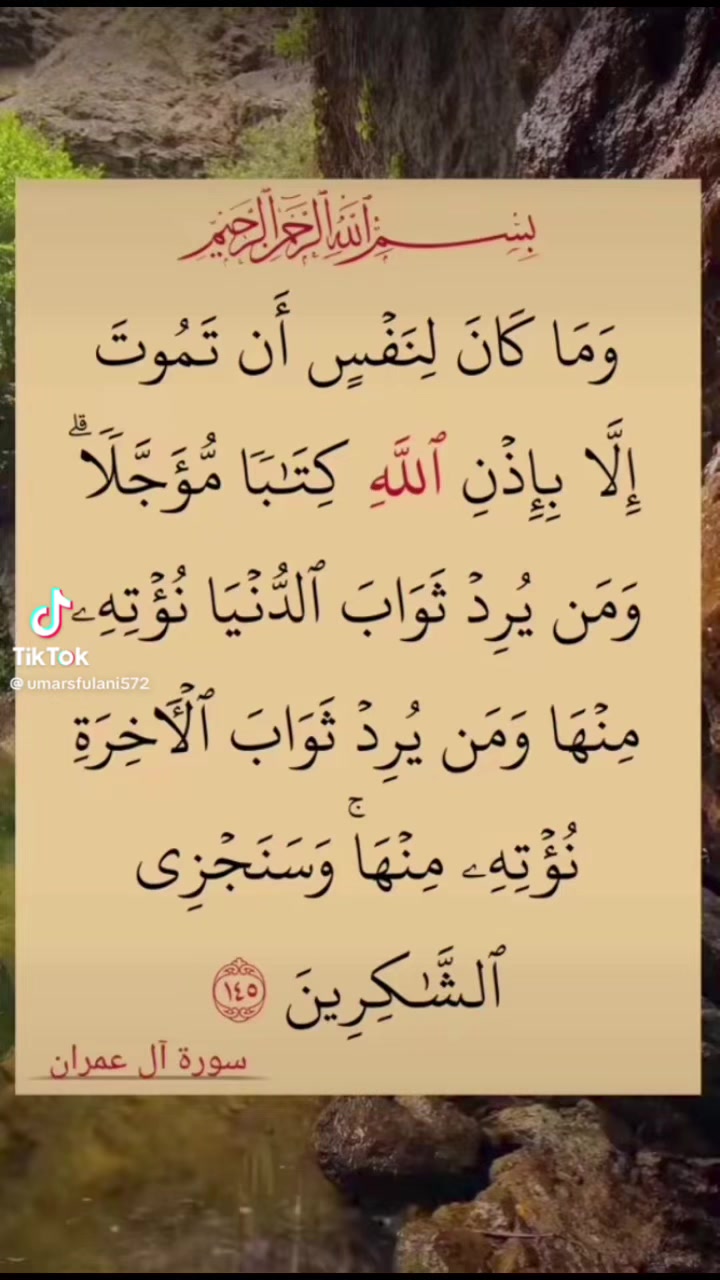 بِسْمِ اللَّهِ الرَّحْمَٰنِ الرَّحِيمِ
وَمَا كَانَ لِنَفۡسٍ أَن تَمُوتَ
إِلَّا بِإِذۡنِ ٱللَّهِ كِتَٰبٗا مُّؤَجَّلٗاۗ
وَمَن يُرِدۡ ثَوَابَ ٱلدُّنۡيَا نُؤۡتِهِۦ
مِنۡهَا وَمَن يُرِدۡ ثَوَابَ ٱلۡأٓخِرَةِ
نُؤۡتِهِۦ مِنۡهَاۚ وَسَنَجۡزِي
ٱلشَّٰكِرِينَ ١٤٥
سورة آل عمران
TikTok
@umarsfulani572